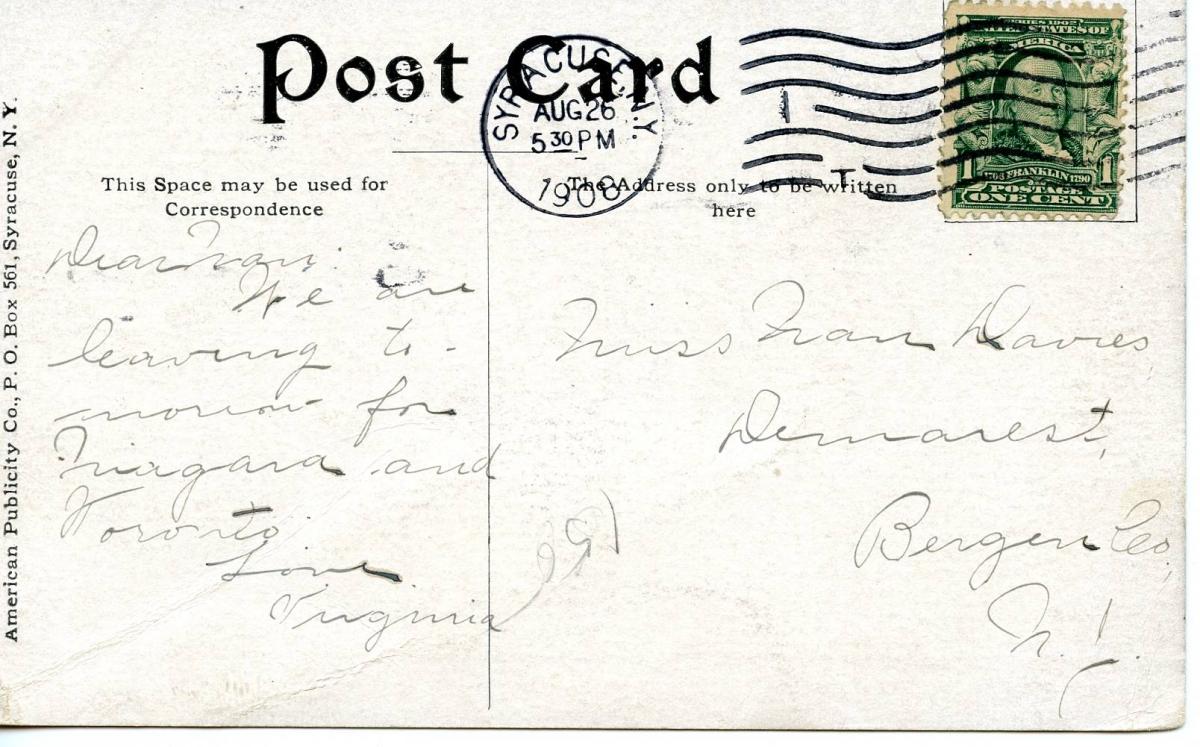 Post Card
SYRACUSE, N.Y.
AUG 26
5 30 PM
1908
I
T
SERIES 1902
UNITED STATES OF
AMERICA
1706 FRANKLIN 1790
POSTAGE
1 1
ONE CENT
American Publicity Co., P. O. Box 561, Syracuse, N. Y.
This Space may be used for
Correspondence
The Address only to be written
here
Dear Fran.
We are
leaving to-
morrow for
Niagara and
Toronto
Love
Virginia
Miss Fran Davies
Demarest,
Bergen Co,
N. J.